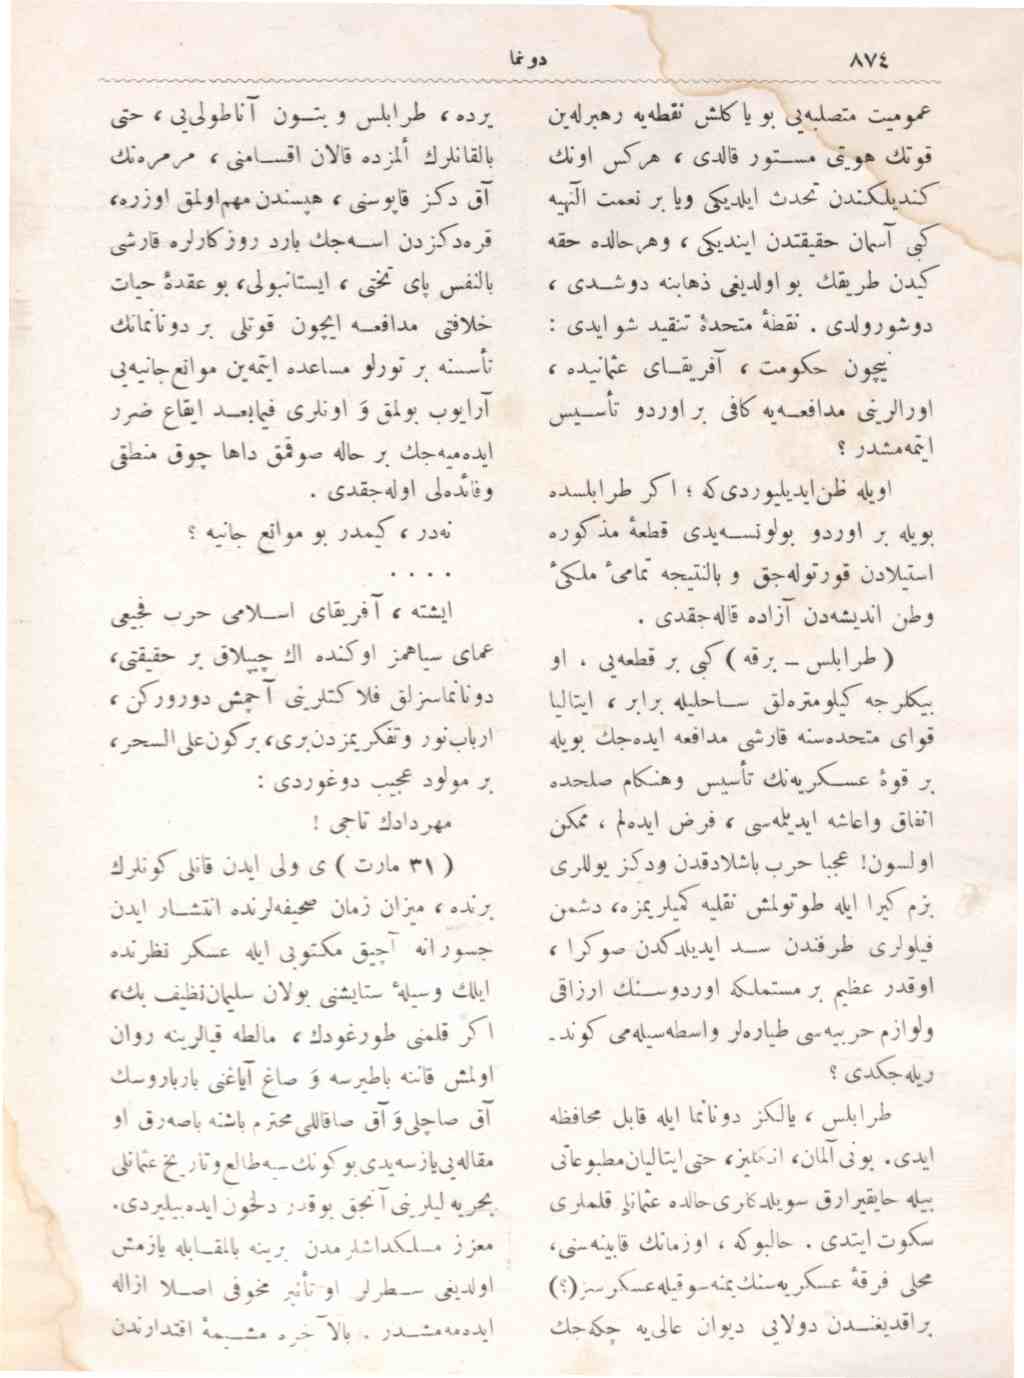 ٨٧٤
دونما
عمومیت متصلبه‌یی بو یا كلش نقطه‌یه رهبرله‌ین
قوتك هویتی مستور قالدی ، هركس اونك
كندیلكندن تحدث ایلدیكی ویا بر نعمت الٓهیه
كبی آسمان حقیقتدن ایندیكی ، وهرحالده حقه
كیدن طریقك بو اولدیغی ذهابنه دوشدی ،
دوشورولدی . نقطهٔ متحدهٔ تنقید شو ایدی :
نیچون حكومت ، آفریقای عثمانیده ،
اورالرینی مدافعه‌یه كافی بر اوردو تأسیس
ایتمه‌مشدر ؟
اویله ظن ایدیلیوردی‌كه ؛ اكر طرابلسده
بویله بر اوردو بولونسه‌یدی قطعهٔ مذكوره
استیلادن قورتوله‌جق و بالنتیجه تمامئ ملكئ
وطن اندیشه‌دن آزاده قاله‌جقدی .
( طرابلس ــ برقه ) كبی بر قطعه‌یی . او
بیكلرجه كیلومتره‌لق ساحلیله برابر ، ایتالیا
قوای متحده‌سنه قارشی مدافعه ایده‌جك بویله
بر قوهٔ عسكریه‌نك تأسیس وهنكام صلحده
اتفاق واعاشه ایدیله‌سی ، فرض ایده‌لم ، ممكن
اولسون! عجبا حرب باشلادقدن ودكز یوللری
بزم كیرا ایله طوتولمش نقلیه كمیلریمزه، دشمن
فیلولری طرفندن سد ایدیلدكدن صوكرا ،
اوقدر عظیم بر مستملكه اوردوسنك ارزاقی
ولوازم حربیه‌سی طیاره‌لر واسطه‌سیله‌می كوند-
ریله‌جكدی ؟
طرابلس ، یالكز دونانما ایله قابل محافظه
ایدی. بونی آلمان، انكلیز، حتی ایتالیان مطبوعاتی
بیله حایقیرارق سویلدكلری حالده عثمانلی قلملری
سكوت ایتدی . حالبوكه ، اوزمانك قابینه‌سنی،
محلی فرقهٔ عسكریه‌سنك یمنه سوقیله عسكرسز (؟)
براقدیغندن دولایی دیوان عالی‌یه چكه‌جك
یرده ، طرابلس و بتون آناطولی‌یی ، حتی
بالقانلرك ألمزده قالان اقسامنی ، مرمره‌نك
آق دكز قاپوسنی ، هپسندن مهم اولمق اوزره،
قره‌دكزدن اسه‌جك بارد روزكارلره قارشی
بالنفس پای تختی ، ایستانبولی، بو عقدهٔ حیات
خلافتی مدافعه ایچون قوتلی بر دونانمانك
تأسسنه بر تورلو مساعده ایتمه‌ین موانع جانیه‌یی
آرایوب بولمق وَ اونلری فیمابعد ایقاع ضرر
ایده‌میه‌جك بر حاله صوقمق داها چوق منطقی
وفائده‌لی اوله‌جقدی .
نه‌در ، كیمدر بو موانع جانیه ؟
. . . .
ایشته ، آفریقای اسلامی حرب فجیعی
عمای سیاهمز اوكنده اك چیپلاق بر حقیقتی،
دونانماسزلق فلاكتلرینی آچمش دوروركن ،
ارباب نور وتفكریمزدن بری، بركون علی السحر،
بر مولود عجیب دوغوردی :
مهردادك تاجی !
( ٣١ مارت ) ی ولی ایدن قانلی كونلرك
برنده ، میزان زمان صحیفه‌لرنده انتشار ایدن
جسورانه آچیق مكتوبی ایله عسكر نظرنده
ایلك وسیلهٔ ستایشنی بولان سلیمان نظیف بك،
اكر قلمنی طورغودك ، مالطه قیالرینه روان
اولمش قاننه باطیرسه وَ صاغ آیاغنی بارباروسك
آق صاچلی وَ آق صاقاللی محترم باشنه باصه‌رق او
مقاله‌یی یازسه‌یدی بوكونك سیه طالع وتاریخ عثمانلی
بحریه لیلرینی آنجق بوقدر دلخون ایده‌بیلیردی.
معزز مسلكداشلرمدن برینه بالمقابله یازمش
اولدیغی سطرلر او تأثیر مخوفی اصلا ازاله
ایده‌مه‌مشدر . بالآخره مشیمهٔ اقتدارندن